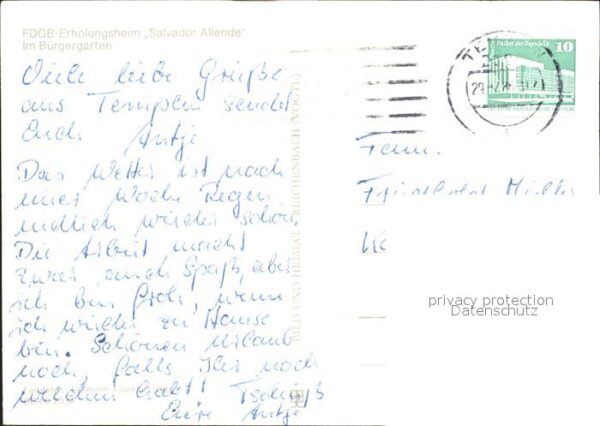 FDGB-Erholungsheim „Salvador Allende"
Im Bürgergarten
Viele liebe Grüße
aus Templin sendet
Euch Antje
Das Wetter ist nach
einer Woche Regen
endlich wieder schön.
Die Arbeit macht
zwar auch Spaß, aber
ich bin froh, wenn
ich wieder zu Hause
bin. Schönen Urlaub
noch, falls Ihr noch
welchen habt! Tschüß
Eure Antje
BILD UND HEIMAT REICHENBACH (VOGTL)
Palast der Republik
10
Fam.
privacy protection
Datenschutz